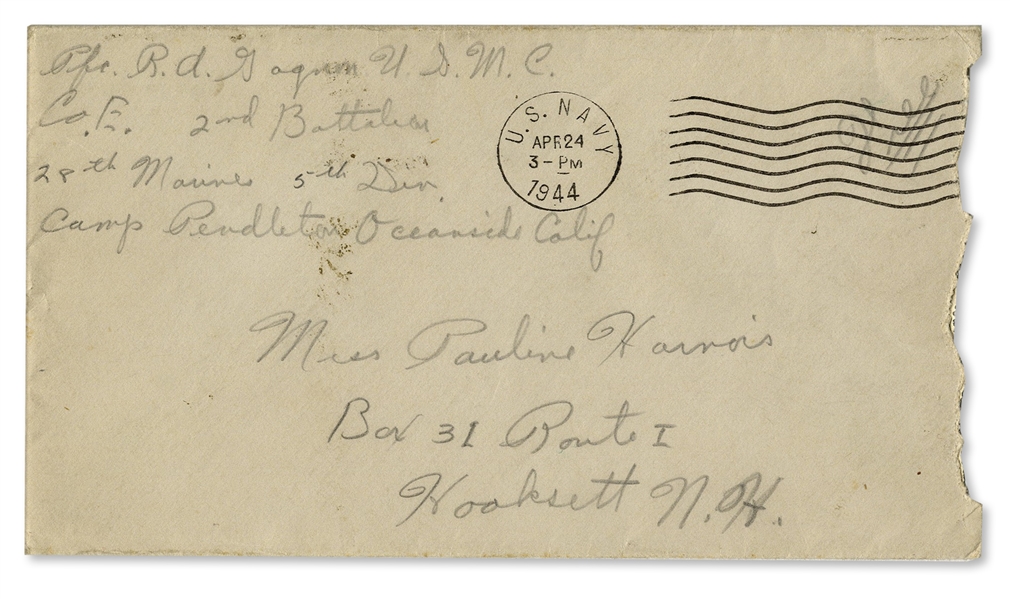 Pfc. R.A. Gagnon U.S.M.C.
Co. E. 2nd Battalion
28th Marines 5th Div.
Camp Pendleton Oceanside Calif
U.S. NAVY
APR 24
3-PM
1944
Miss Pauline Harnois
Box 31 Route I
Hooksett N.H.